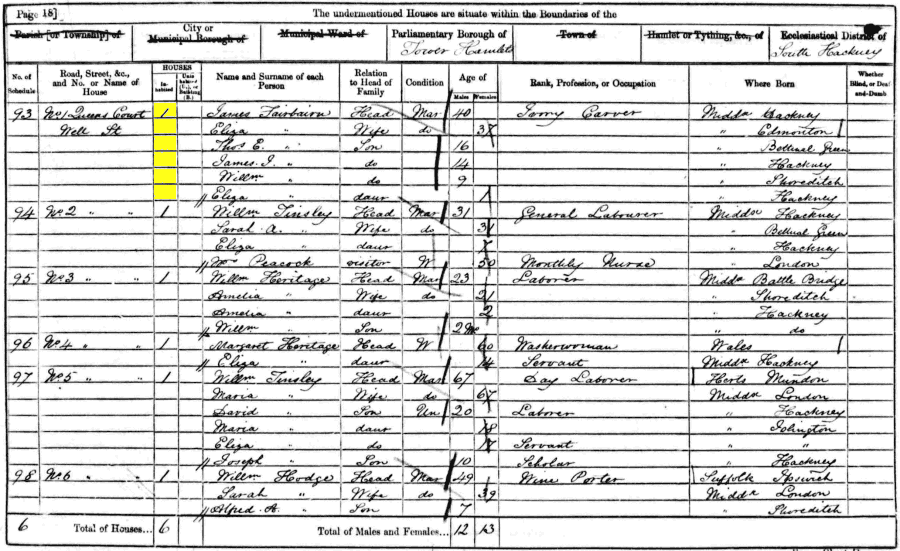 Page 18] The undermentioned Houses are situate within the Boundaries of the
Parish [or Township] of City or Municipal Borough of Municipal Ward of Parliamentary Borough of Tower Hamlets Town of Hamlet or Tything, &c., of Ecclesiastical District of South Hackney
No. of Schedule Road, Street, &c., and No. or Name of House HOUSES Inhabited Uninhabited (U.), or Building (B.) Name and Surname of each Person Relation to Head of Family Condition Age of Males Females Rank, Profession, or Occupation Where Born Whether Blind, or Deaf-and-Dumb
93 No 1 Queens Court 1 James Fairbairn Head Mar 40 Ivory Carver Middx Hackney
Well St Eliza " Wife do " Edmonton
Thos E. " Son 16 " Bethnal Green
James I. " do 14 " Hackney
Willm " do 9 " Shoreditch
Eliza " daur 1 " Hackney
94 No 2 " " 1 Willm Tinsley Head Mar 31 General Labourer Middx Hackney
Sarah A. " Wife do 31 " Bethnal Green
Eliza " daur " Hackney
Peacock visitor W 50 Monthly Nurse " London
95 No 3 " " 1 Willm Heritage Head Mar 23 Laborer Middx Battle Bridge
Amelia " Wife do 21 " Shoreditch
Amelia " daur 2 " Hackney
Willm " Son 2 Mo " do
96 No 4 " " 1 Margaret Heritage Head W 60 Washerwoman Wales
Eliza " daur 14 Servant Middx Hackney
97 No 5 " " 1 Willm Tinsley Head Mar 67 Day Laborer Herts Mundon
Maria " Wife do 67 Middx London
David " Son Un 20 Laborer " Hackney
Maria " daur 18 " Islington
Eliza " do 17 Servant " "
Joseph " Son 10 Scholar " Hackney
98 No 6 " 1 Willm Hodge Head Mar 49 Wine Porter Suffolk Ipswich
Sarah " Wife do 39 Middx London
Alfred A. " Son 7 " Shoreditch
6 Total of Houses... 6 Total of Males and Females... 12 13